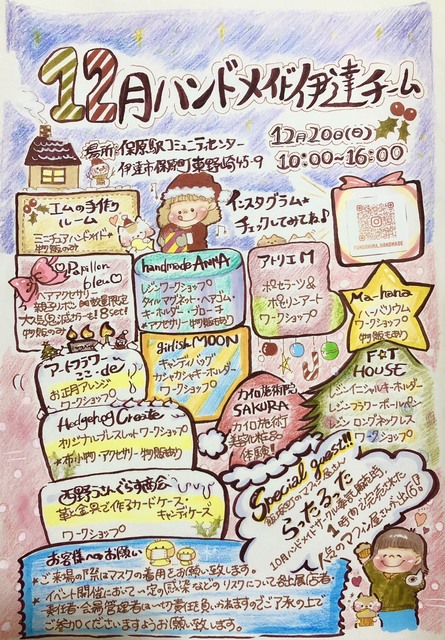 12月ハンドメイド伊達チーム
12月20日(日)
10:00〜16:00
場所 保原駅コミュニティセンター
伊達市保原町東野崎45-9
インスタグラム
チェックしてみてね♪
エムの手作り
ルーム
ミニチュアハンドメイド
物販のみ
Papillon
bleu
ヘアアクセサリー
物販のみ
handmade ANNA
レジンワークショップ
タイルマグネット・ヘアゴム・
キーホルダー・ブローチ
*アクセサリー物販有り
アトリエM
ポセラーツ&
ポモリーアート
ワークショップ
Ma-hana
ハーバリウム
ワークショップ
物販も有り
アートフラワー
ここ・de
お正月アレンジ
ワークショップ
girlish MOON
キャンディバッグ
カシャカシャキーホルダー
ワークショップ
カイロ施術院
SAKURA
カイロ施術
美容化粧品
体験!!
F*T
HOUSE
レジンイニシャルキーホルダー
レジンフラワーボールペン
レジンロングネックレス
ワークショップ
Hedgehog Create
オリジナルブレスレットワークショップ
*布小物・アクセサリー物販有り
西野うさんぐらす商会
革と金具で作るカードケース・
キャンディケース
ワークショップ
Special guest!!
らったるった
1時間で完売された
人気のマフィン屋さんが出店!
お客様へのお願い
*ご来場の際はマスクの着用をお願い致します。
*イベント開催において一定の感染などのリスクについて各出展(店)者・
責任者・会場管理者はいっさい責任を負いかねますのでご了承の上で
ご参加くださいますようお願い致します。